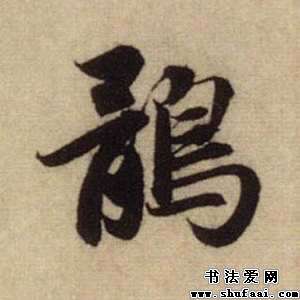 鶻
书法爱网
www.shufaai.com